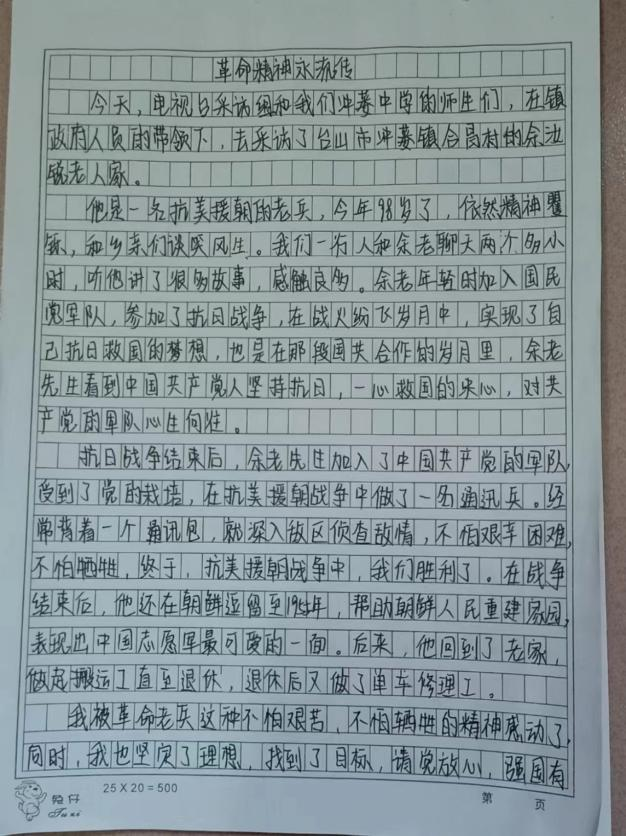 革命精神永流传
今天，电视台采访组和我们冲蒌中学的师生们，在镇
政府人员的带领下，去采访了台山市冲蒌镇合昌村的余
锐老人家。
他是一名抗美援朝的老兵，今年98岁了，依然精神矍
铄，和乡亲们谈笑风生。我们一行人和余老聊天两个多小
时，听他讲了很多故事，感触良多。余老年轻时加入国民
党军队，参加了抗日战争，在战火纷飞岁月中，实现了自
己抗日救国的梦想，也是在那段国共合作的岁月里，余老
先生看到中国共产党人坚持抗日，一心救国的决心，对共
产党的军队心生向往。
抗日战争结束后，余老先生加入了中国共产党的军队，
受到了党的栽培，在抗美援朝战争中做了一名通讯兵。经
常背着一个通讯包，就深入敌区侦查敌情，不怕艰辛困难，
不怕牺牲，终于，抗美援朝战争中，我们胜利了。在战争
结束后，他还在朝鲜逗留至1954年，帮助朝鲜人民重建家园，
表现出中国志愿军最可爱的一面。后来，他回到了老家，
做起搬运工直至退休，退休后又做了单车修理工。
我被革命老兵这种不怕艰苦，不怕牺牲的精神感动了，
同时，我也坚定了理想，找到了目标，请党放心，强国有
兔仔
Tuzi
25×20=500
第 页